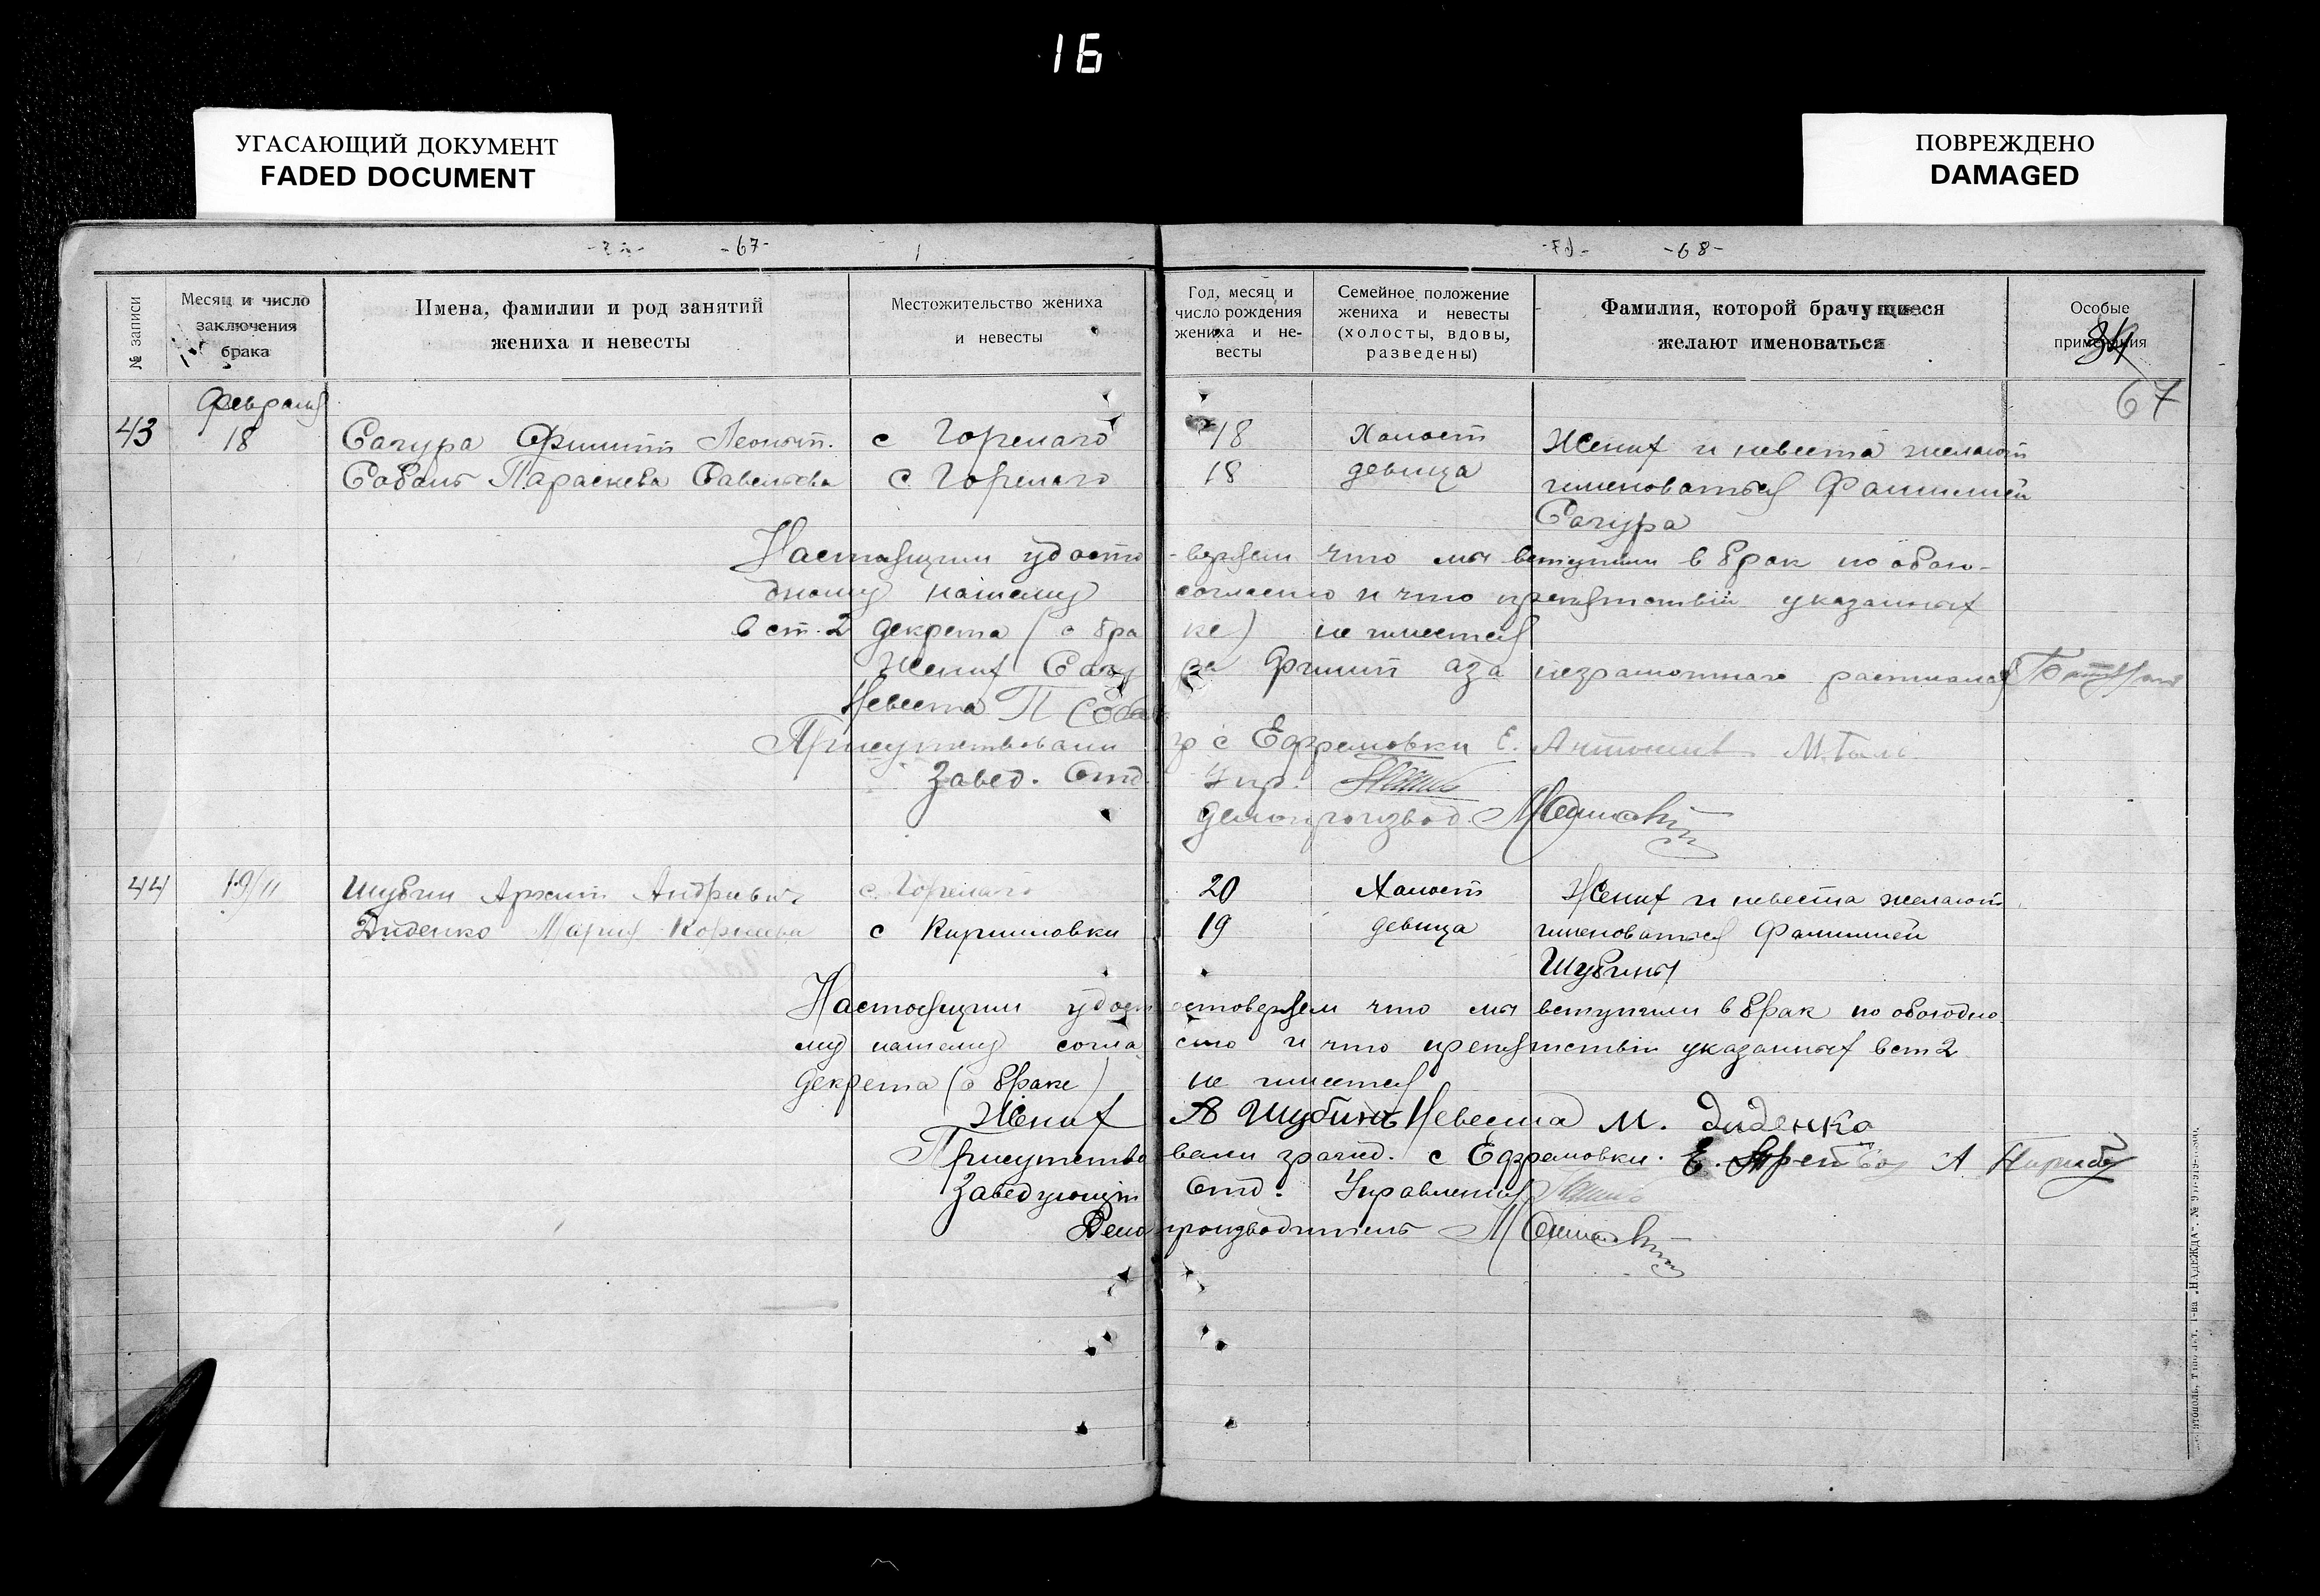 16
УГАСАЮЩИЙ ДОКУМЕНТ
FADED DOCUMENT
ПОВРЕЖДЕНО
DAMAGED
-67-
-68-
№ записи
Месяц и число
заключения
брака
Имена, фамилии и род занятий
жениха и невесты
Местожительство жениха
и невесты
Год, месяц и
число рождения
жениха и не-
весты
Семейное положение
жениха и невесты
(холосты, вдовы,
разведены)
Фамилия, которой брачущиеся
желают именоваться
Особые
примечания
67
февраля
43 18 Сагура Филипп Леонт. с Горелаго 18 Холост Жених и невеста желают
Соболь Параскева Савельева с Горелаго 18 девица именоваться Фамилией
Сагура
Настоящим удосто-веряем что мы вступили в брак по обою-
дному нашему согласию и что препятствий указанных
в ст. 2 декрета (о браке) не имеется
Жених Сагура Филип а за неграмотнаго расписался
Невеста П Собол
Присутствовали гр с Ефремовки Е. М. Галь
Завед. Отд. Упр.
делопроизвод.
44 19/II Шубин Архип Андреевич с Горелаго 20 Холост Жених и невеста желают
Диденко Мария Корнеева с Кирилловки 19 девица именоваться Фамилией
Шубины
Настоящим удостоверяем что мы вступили в брак по обоюдно
му нашему согласию и что препятствий указанных в ст 2
декрета (о браке) не имеется
Жених А Шубинъ Невеста М. Диденко
Присутствовали гражд. с Ефремовки. Е. А
Заведующий Отд. Управления
Делопроизводитель